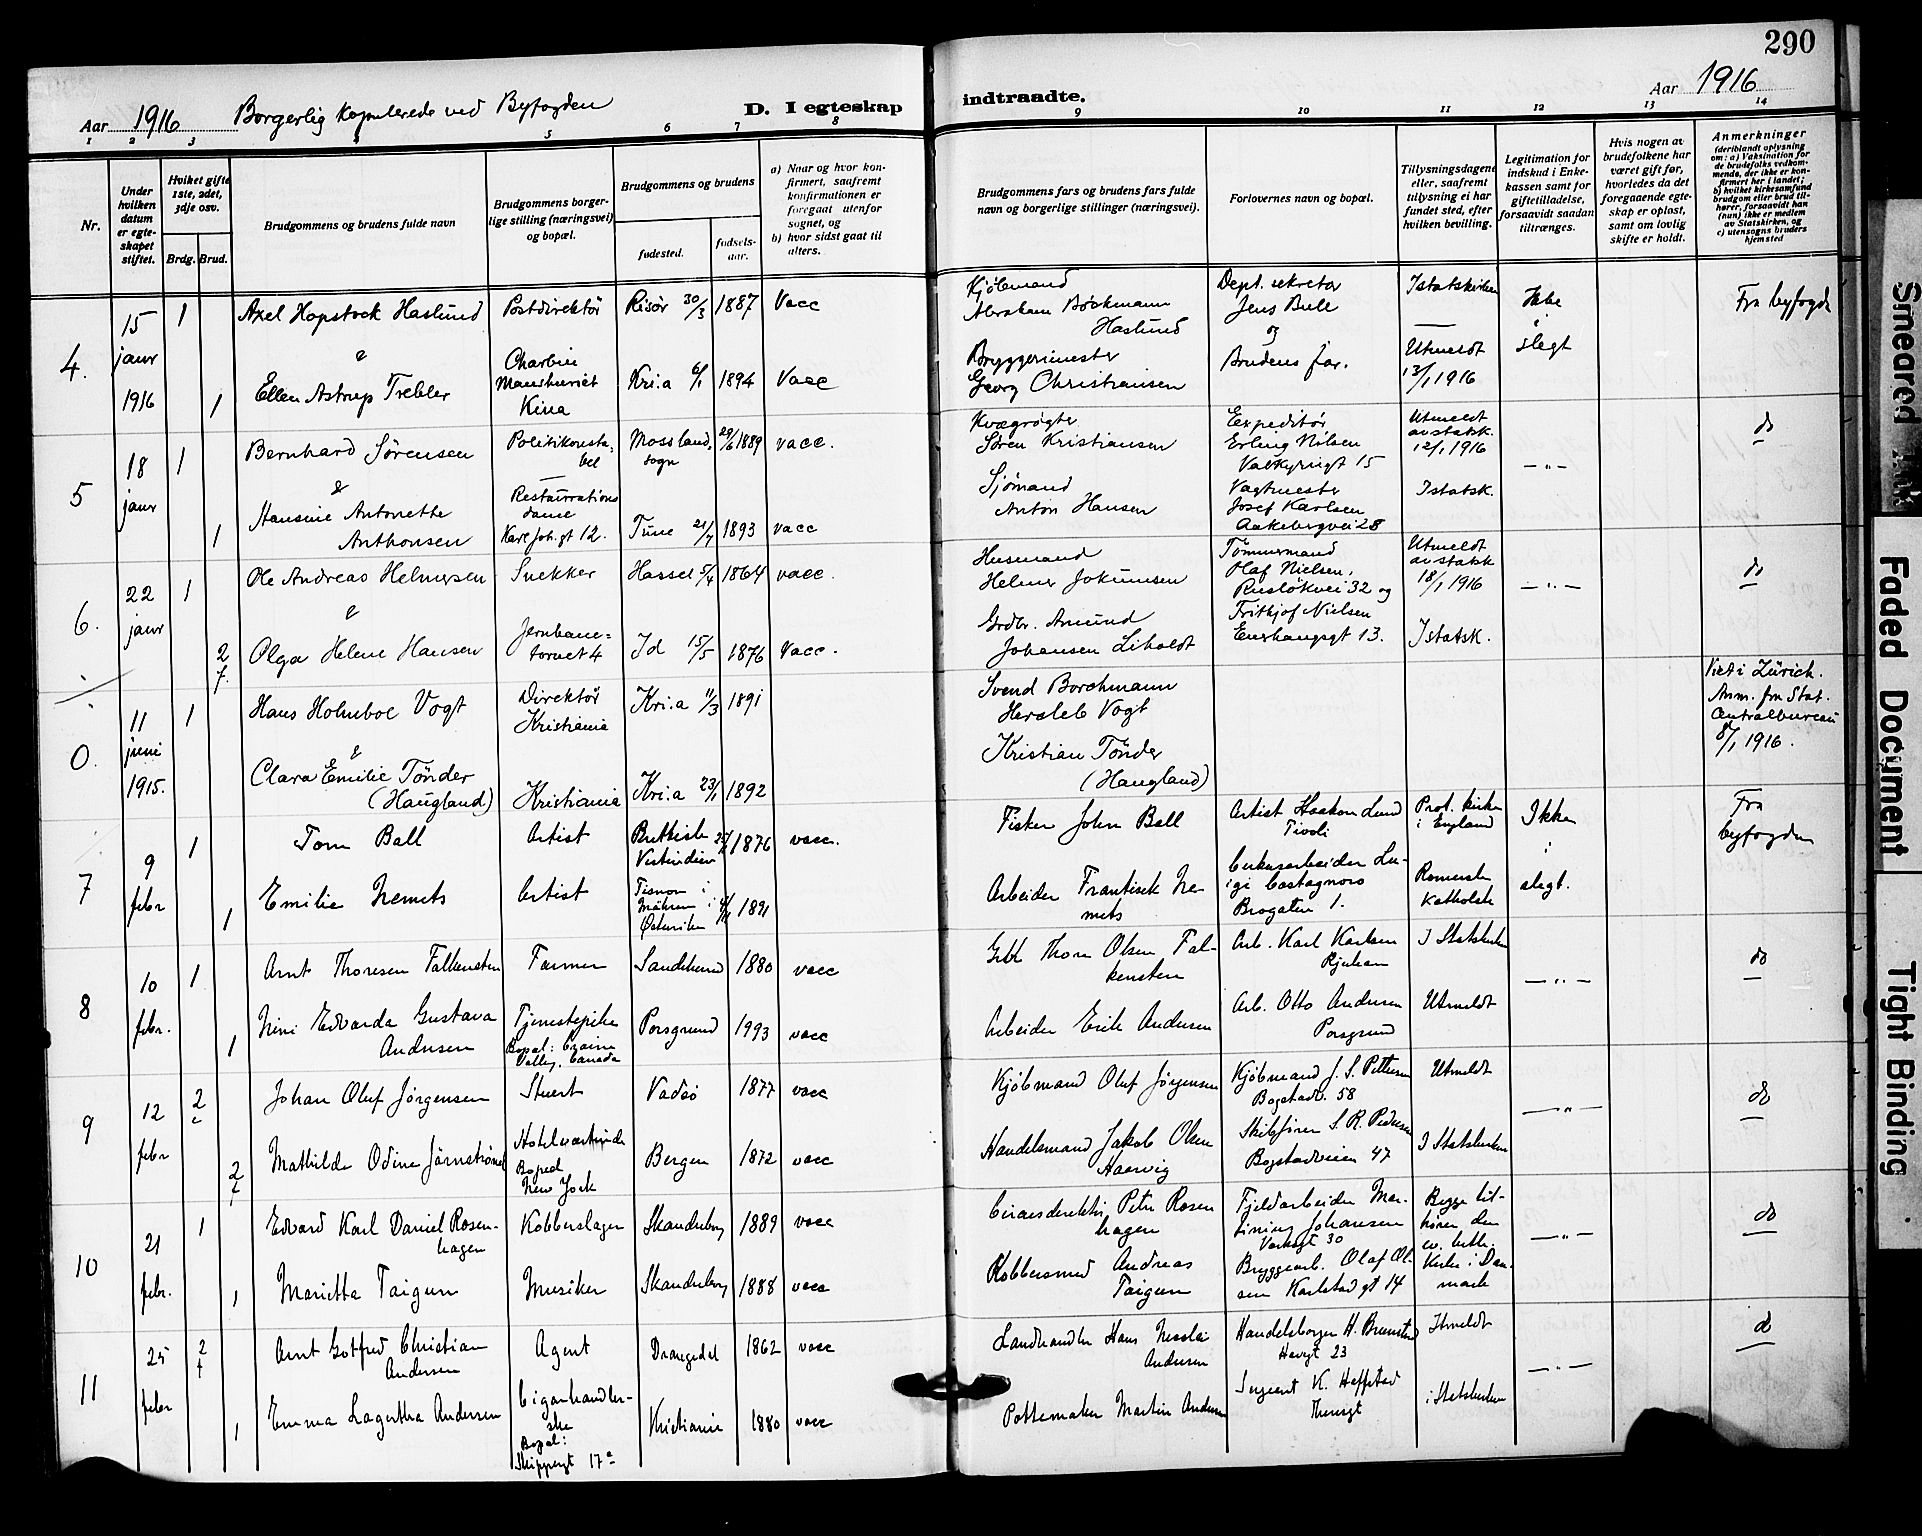 290
Aar 1916 Borgerlig kopulerede ved Byfogden
D. I egteskap indtraadte.
Aar 1916
1 2 3 4 5 6 7 8 9 10 11 12 13 14
Nr.
Under hvilken datum er egteskapet stiftet.
Hvilket gifte 1ste, 2det, 3dje osv.
Brdg. Brud.
Brudgommens og brudens fulde navn
Brudgommens borgerlige stilling (næringsvei) og bopæl.
Brudgommens og brudens
fødested.
fødselsaar.
a) Naar og hvor konfirmert, saafremt konfirmationen er foregaat utenfor sognet, og
b) hvor sidst gaat til alters.
Brudgommens fars og brudens fars fulde navn og borgerlige stillinger (næringsvei).
Forlovernes navn og bopæl.
Tillysningsdagene eller, saafremt tillysning ei har fundet sted, efter hvilken bevilling.
Legitimation for indskud i Enkekassen samt for giftetilladelse, forsaavidt saadan tiltrænges.
Hvis nogen av brudefolkene har været gift før, hvorledes da det foregaaende egteskap er opløst, samt om lovlig skifte er holdt.
Anmerkninger
(deriblandt oplysning om: a) Vaksination for de brudefolks vedkommende, der ikke er konfirmert her i landet; b) hvilket kirkesamfund brudgom eller brud tilhører, forsaavidt han (hun) ikke er medlem av Statskirken, og c) utensogns bruders hjemsted
4. 15 janr 1916
1 Axel Hopstock Haslund Postdirektör Risör 30/3 1887 Vacc
Kjöbmand Abraham Bockmann Haslund
Dept. sekretær Jens Bull og
I statskirken
Ikke i slegt
Fra byfogde
&
1 Ellen Astrup Trebler Charbin Manshuriet Kina Kri.a 6/1 1894 Vacc
Bryggerimester Georg Christiansen
Brudens far.
Utmeldt 13/1 1916
5 18 janr
1 Bernhard Sørensen Politikonstabel Mossland.sogn 20/6 1889 vacc.
Kvægrøgter Sören Kristiansen
Expeditör Erling Nilsen Valkyriegt 15
Utmeldt av statsk. 12/1 1916
— " —
do
&
1 Hansine Antonette Anthonsen Restaurationsdame Karl Joh. gt 12. Tune 21/7 1893 vacc
Sjømand Anton Hansen
Vagtmester Josef Karlsen Aakebergvei 28
I statsk.
6. 22 janr
1 Ole Andreas Helmersen Snekker Hassel 5/4 1864 vacc.
Husmand Helmer Jokumsen
Tømmermand Olaf Nielsen, Ruslökvei 32 og
Utmeldt av statsk 18/1 1916
— " —
do
&
2 f. Olga Helene Hansen Jernbanetorvet 4 Id 15/5 1876 Vacc.
Grdbr. Amund Johansen Liholdt
Fritjof Nielsen Enerhaugsgt 13.
I statsk.
0. 11 juni 1915.
1 Hans Holmboe Vogt Direktör Kristiania Kri.a 11/3 1891
Svend Borchmann Hersleb Vogt
Viet i Zürich. Anm. fra Stat. Centralbureau 8/1 1916.
&
Clara Emilie Tönder (Haugland) Kristiania Kri.a 23/1 1892
Kristian Tönder (Haugland)
7 9 febr
1 Tom Ball Artist Vestindien 1876 vacc.
Fisker John Ball
Artist Haakon Lund Tivoli
Prot. kirke i England
Ikke i slegt.
Fra byfogden
1 Emilie Nemets Artist Tisnov i Mähren i Østerrike 1891
Arbeider Frantisek Nemets
Cirkusarbeider Luigi Castagnoro Brogaten 1.
Romersk Katholsk
8 10 febr.
1 Arnt Thoresen Falkensten Farmer Sandeherred 1880 vacc
Gbr. Thore Olsen Falkensten
Arb. Karl Karlsen Rjukan
I Statskirken
— " —
do
1 Nini Edvarda Gustava Andersen Tjenestepike Bopæl: Craine Valley, Canada Porsgrund 1993 vacc
Arbeider Erik Andersen
Arb. Otto Andersen Porsgrund
Utmeldt
9 12 febr
2 Johan Oluf Jørgensen Stuert Vadsö 1877 vacc
Kjøbmand Oluf Jørgensen
Kjøbmand J. S. Pettersen Bogstadv. 58
Utmeldt
— " —
do
2 f Mathilde Odine Järnström Hotelværtinde Bopæl New York Bergen 1872 vacc
Handelsmand Jakob Olsen Haarvig
Skibsfører S. R. Pedersen Bogstadveien 47
I Statskirken
10 21 febr.
1 Edvard Karl Daniel Rosenhagen Kobberslager Skanderborg 1889 vacc
Circusdirektör Peter Rosenhagen
Fjeldarbeider Martinius Johansen Verksgt 30
Begge tilhører den ev. luth. Kirke i Danmark
— " —
do
1 Marietta Taigun Musiker Skanderborg 1888 vacc
Kobbersmed Andreas Taigun
Bryggearb. Olaf Olsen Karlstad gt 14
11 25 febr
2 f Arnt Gotfred Christian Andersen Agent Drangedal 1862 vacc
Landhandler Hans Nicolai Andersen
Handelsborger H. Havegt 23
Utmeldt
— " —
do
1 Emma Lagertha Andersen Cigarhandlerske Bopæl: Skippergt 17a Kristiania 1880 vacc
Pottemaker Martin Andersen
Sergeant K. Haffstad Theresgt
i Statskirken
Smeared Ink
Faded Document
Tight Binding